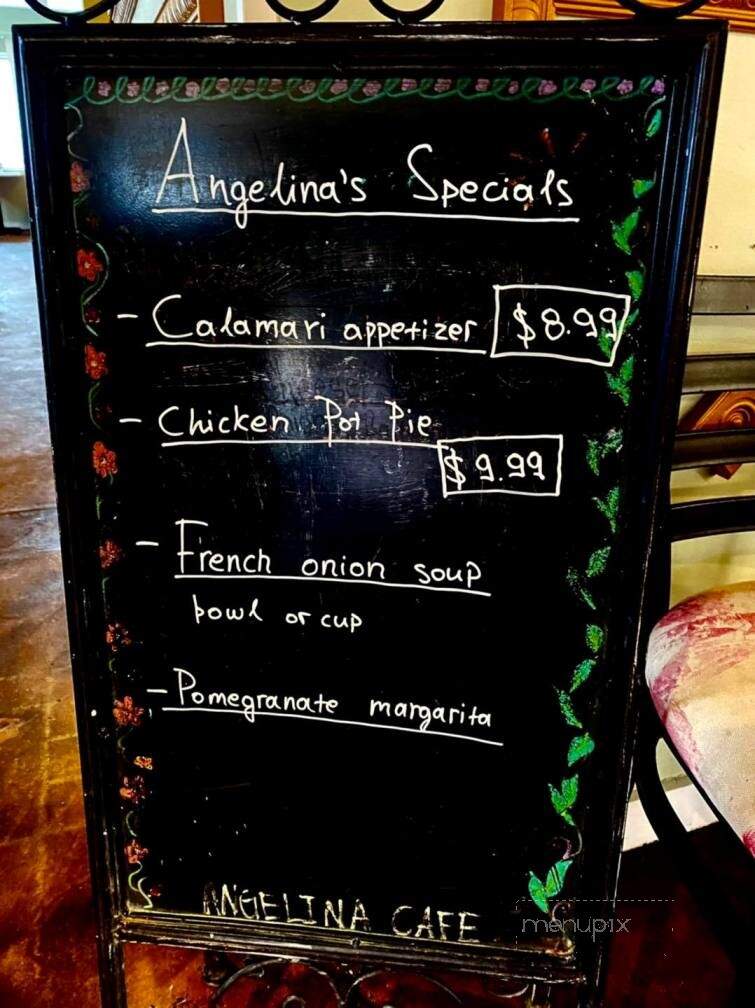 Angelina's Specials
- Calamari appetizer $8.99
- Chicken Pot Pie
$9.99
- French onion soup
bowl or cup
- Pomegranate margarita
ANGELINA CAFE
menupix